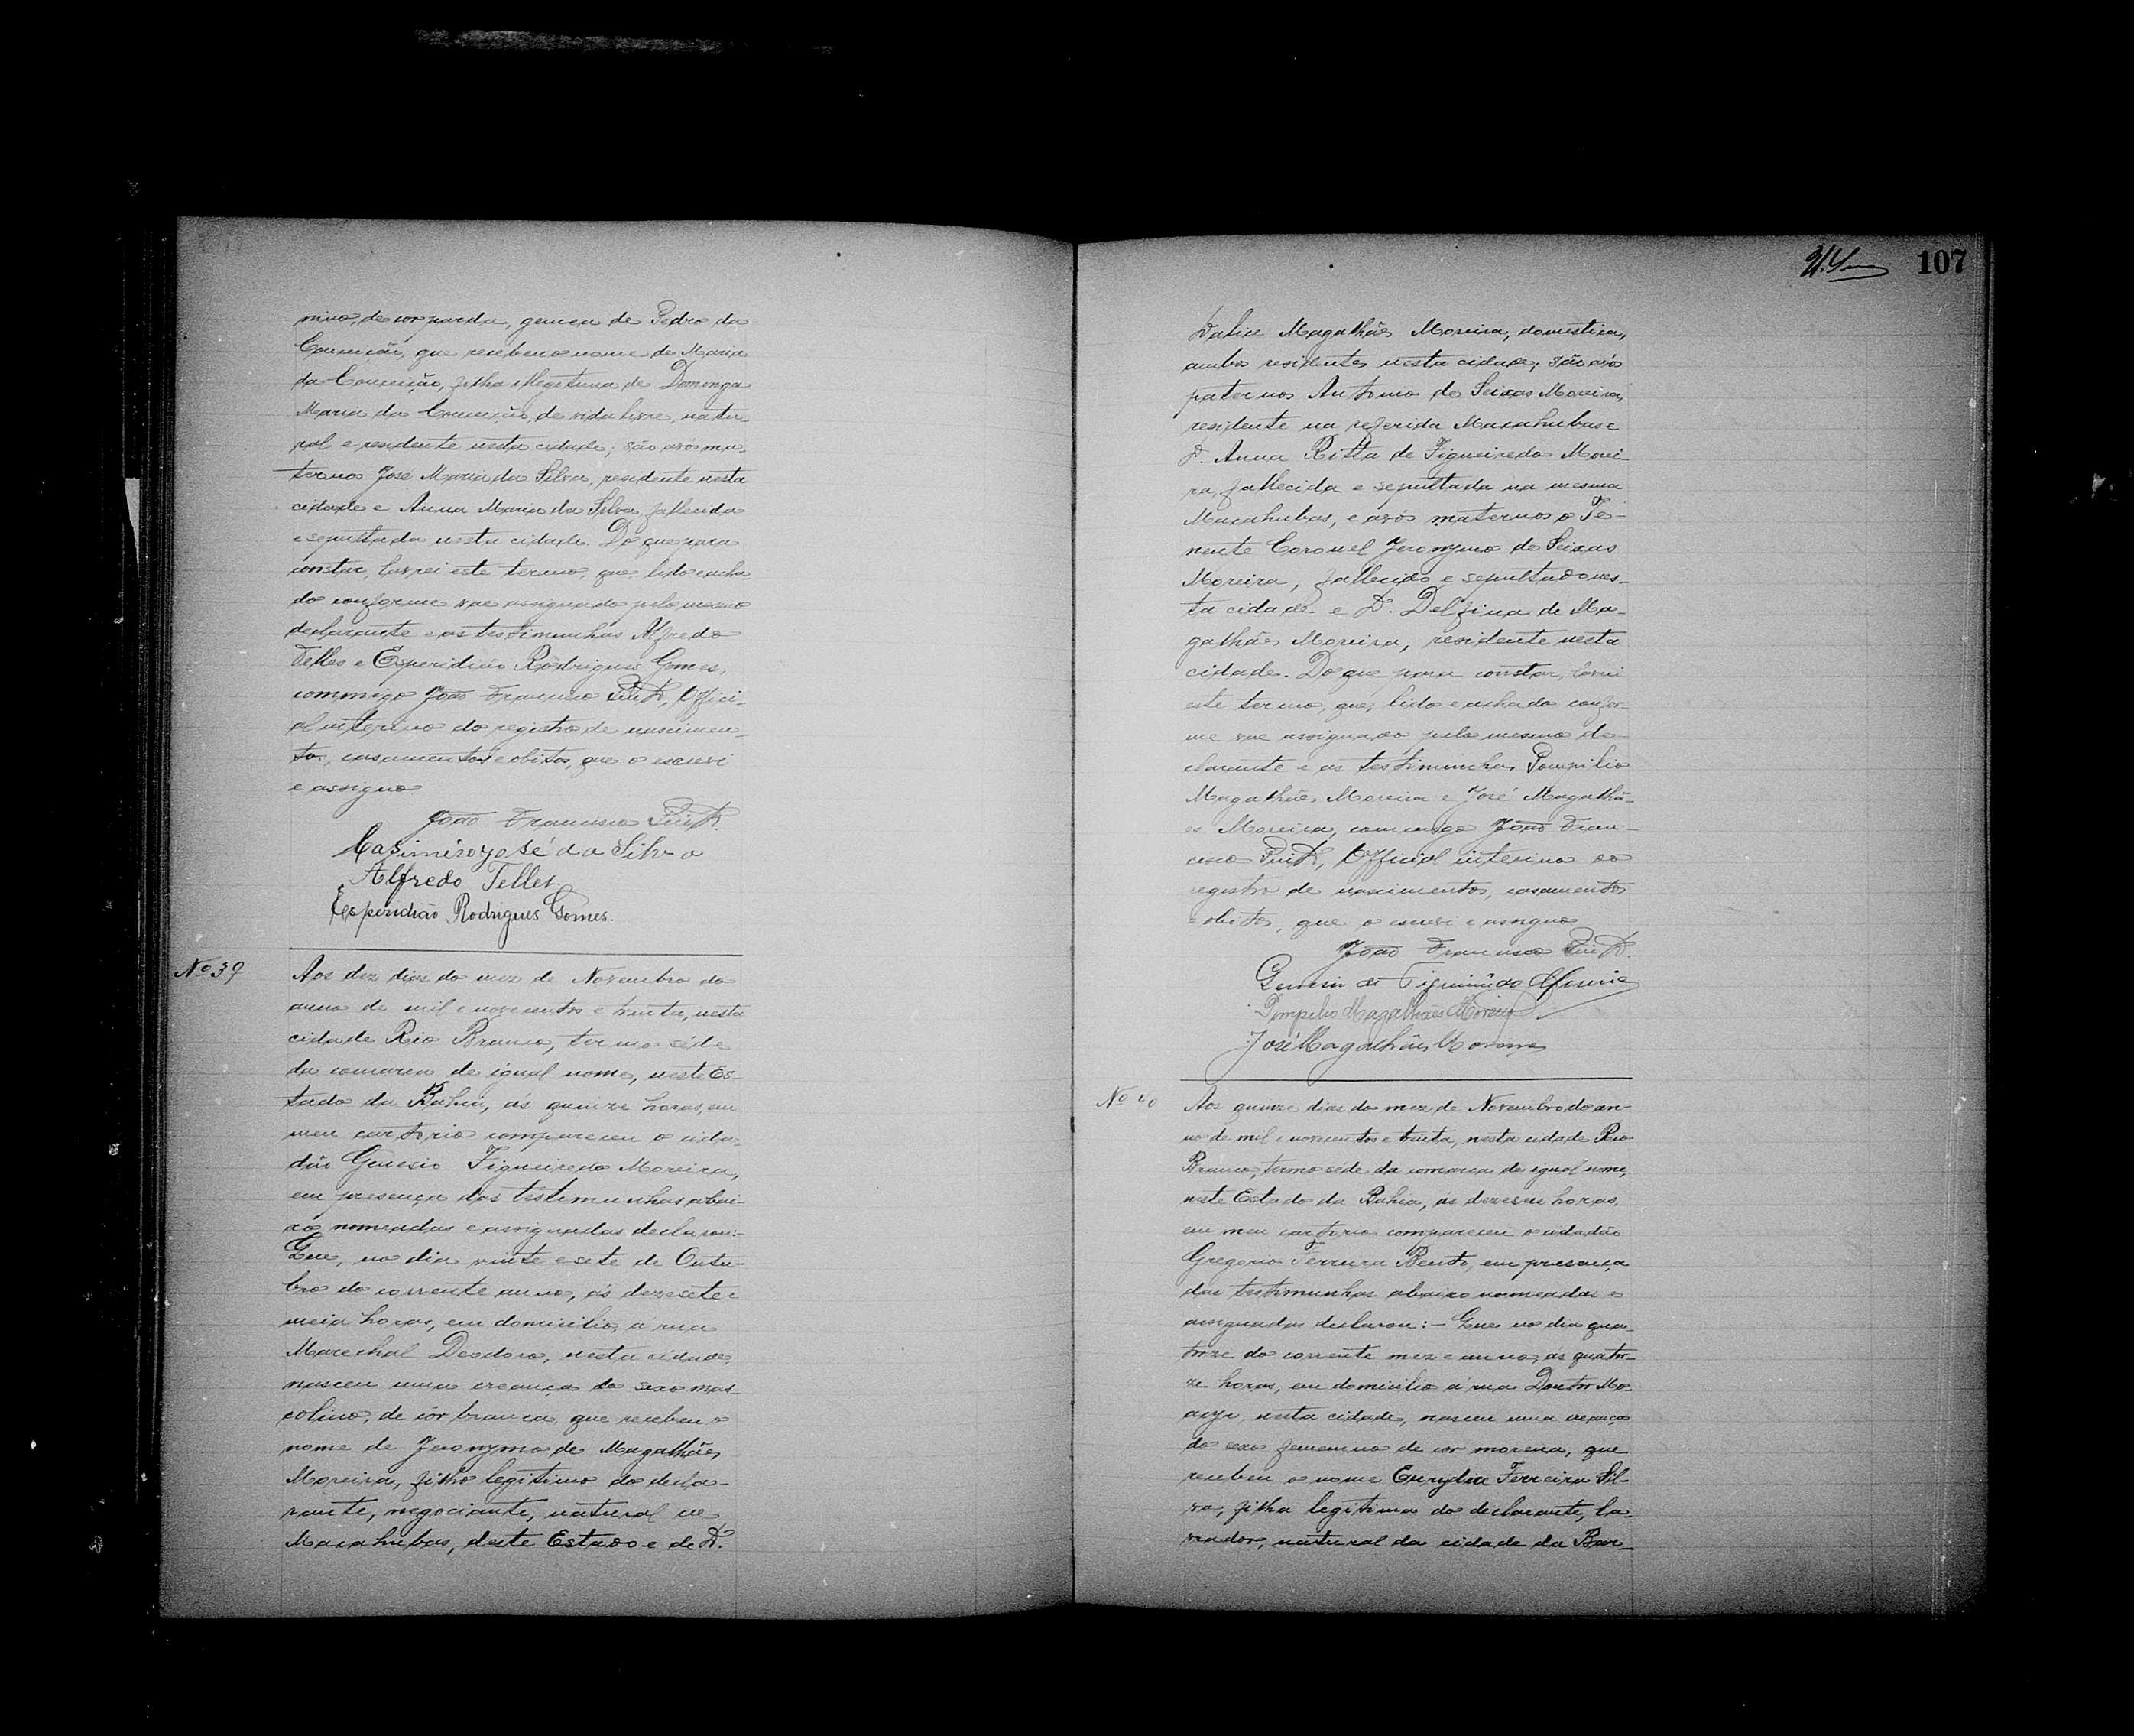 nino, de cor parda, gemea de Pedro da
Conceição, que recebeu o nome de Maria
da Conceição, filha illegitima de Domenga
Maria da Conceição, de vida livre, natu-
ral e residente nesta cidade; são avós ma-
ternos José Maria da Silva, residente nesta
cidade e Anna Maria da Silva, fallecida
e sepultada nesta cidade. Do que para
constar, lavrei este termo, que, lido e acha-
do conforme vae assignado pelo mesmo
declarante e as testimunhas Alfredo
Telles e Esperidião Rodrigues Gomes,
commigo João Francisco, Offici-
al interino do registro de nascimen-
tos, casamentos e obitos, que o escrevi
e assigno
João Francisco
Casimiro José da Silva
Alfredo Telles.
Esperidião Rodrigues Gomes.
Nº 39
Aos dez dias do mez de Novembro do
anno de mil e novecentos e trinta, nesta
cidade Rio Branco, termo séde
da comarca de igual nome, neste Es-
tado da Bahia, ás quinze horas, em
meu cartorio compareceu o cida-
dão Genesio Figueiredo Moreira,
em presença das testimunhas abai-
xo nomeadas e assignadas, declarou:-
Que, no dia vinte e sete de Outu-
bro do corrente anno, ás dezesete e
meia horas, em domicilio, á rua
Marechal Deodoro, nesta cidade,
nasceu uma creança do sexo mas-
colino, de côr branca, que recebeu o
nome de Jeronymo de Magalhães
Moreira, filho legitimo do decla-
rante, negociante, natural de
Macahubas, deste Estado e de D.
107
Dalice Magalhães Moreira, domestica,
ambos residentes nesta cidade; são avós
paternos Antonio de Seixas Moreira,
residente na referida Macahubas e
D. Anna Ritta de Figueiredo Morei-
ra, fallecida e sepultada na mesma
Macahubas, e avós maternos o Te-
nente Coronel Jeronymo de Seixas
Moreira, fallecido e sepultado nes-
ta cidade e D. Delfina de Ma-
galhães Moreira, residente nesta
cidade. Do que para constar, lavrei
este termo, que, lido e achado confor-
me vae assignado pelo mesmo de-
clarante e as testimunhas Pompilio
Magalhães Moreira e José Magalhã-
es Moreira, commigo João Fran-
cisco, Official interino do
registro de nascimentos, casamentos
e obitos, que o escrevi e assigno
João Francisco
Genesio de Figueiredo Moreira
Pompilio Magalhães Moreira
José Magalhães Moreira
Nº 40
Aos quinze dias do mez de Novembro do an-
no de mil e novecentos e trinta, nesta cidade Rio
Branco, termo séde da comarca de igual nome,
neste Estado da Bahia, as dezeseis horas,
em meu cartorio compareceu o cidadão
Gregorio Ferreira Bento, em presença
das testimunhas abaixo nomeadas e
assignadas declarou:- Que no dia qua-
torze do corrente mez e anno, ás quator-
ze horas, em domicilio á rua Doutor Mo-
acyr, nesta cidade, nasceu uma creança
do sexo femenino de cor morena, que
recebeu o nome Eurydice Ferreira Sil-
va, filha legitima do declarante, la-
vrador, natural da cidade da Bar-